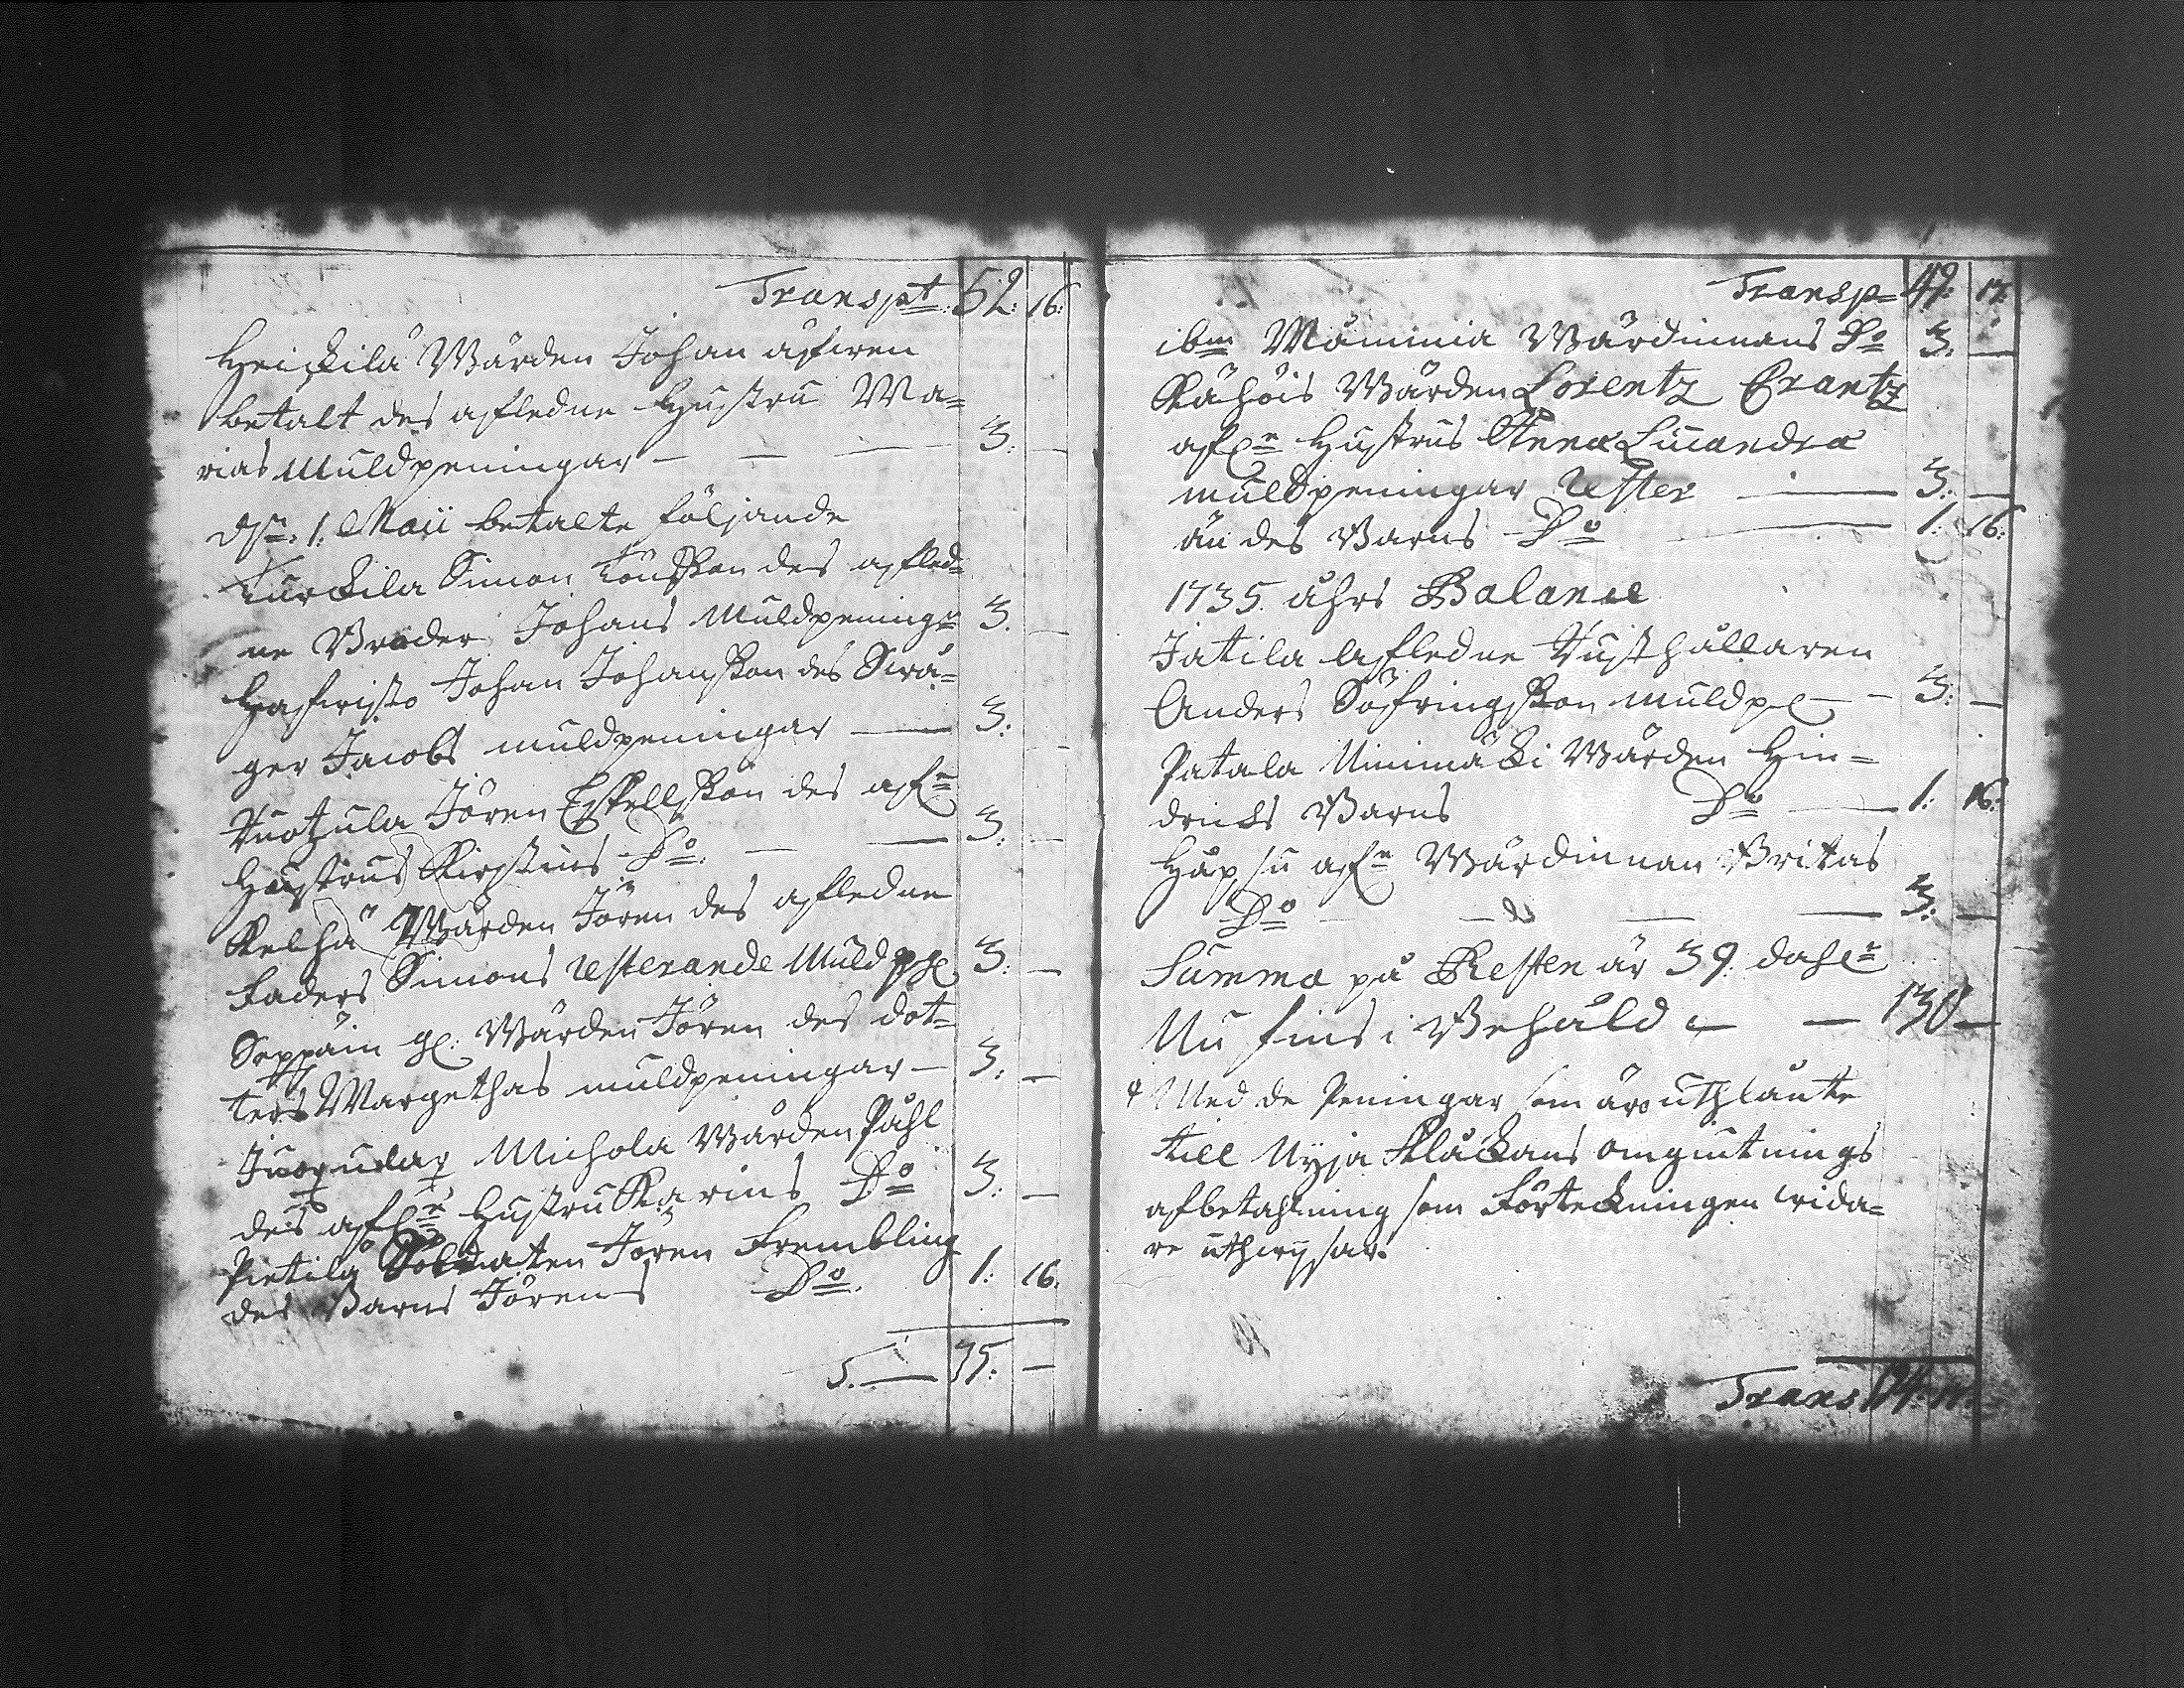 Transpt 52: 16:
Heickilä Wärden Johan äfwen
betalt des afledne Hustru Ma=
rias Muldpeningar — — — 3: —
dsn. 1. Maii betalte följande
Kurckila Simon Tomsson des afled=
ne Broder Johans Muldpeningr 3. —
Johan Johansson des Swå=
ger Jacobs muldpeningar — 3:
Jören Eskellsson des afn
Hustrus Kirstins Do. — — 3: —
Kelhä Wärden Jören des afledne
Faders Simons resterande Muldpge 3: —
Seppäin gl. Wärden Jören des dot=
ters Margethas muldpeningar — 3: —
Michola Wärden Påhl
des afln Hustru Karins Do 3: —
Pietilä Soldaten Jören Frembling
des Barns Jörens Do. 1: 16.
S. — 75: —
Transp= 49: 17:
ibm Mämmiä Wärdinnans Do 3: —
Kähöis Wärden Lorentz Crantz
afln Hustrus Anna Lucandra
muldpeningar Rester — 3: —
än des Barns Do — 1: 16:
1735. åhrs Balance
Jatila Afledne Rusthållaren
Anders Söfringsson muldpe — 3: —
Patala Ninimäki Wärden Hin=
dricks Barns Do — 1: 16:
Håpsu afn Wärdinnan Britas
Do — — — 3: —
Summa på Resten är 39: dahlr
Nu fins i Behåld — — 130 —
Med de Peningar som äro uthlånte
till Nyja Klåckans omgiutnings
afbetahlning som Förteckningen wida=
re uthwijsar.
Trans